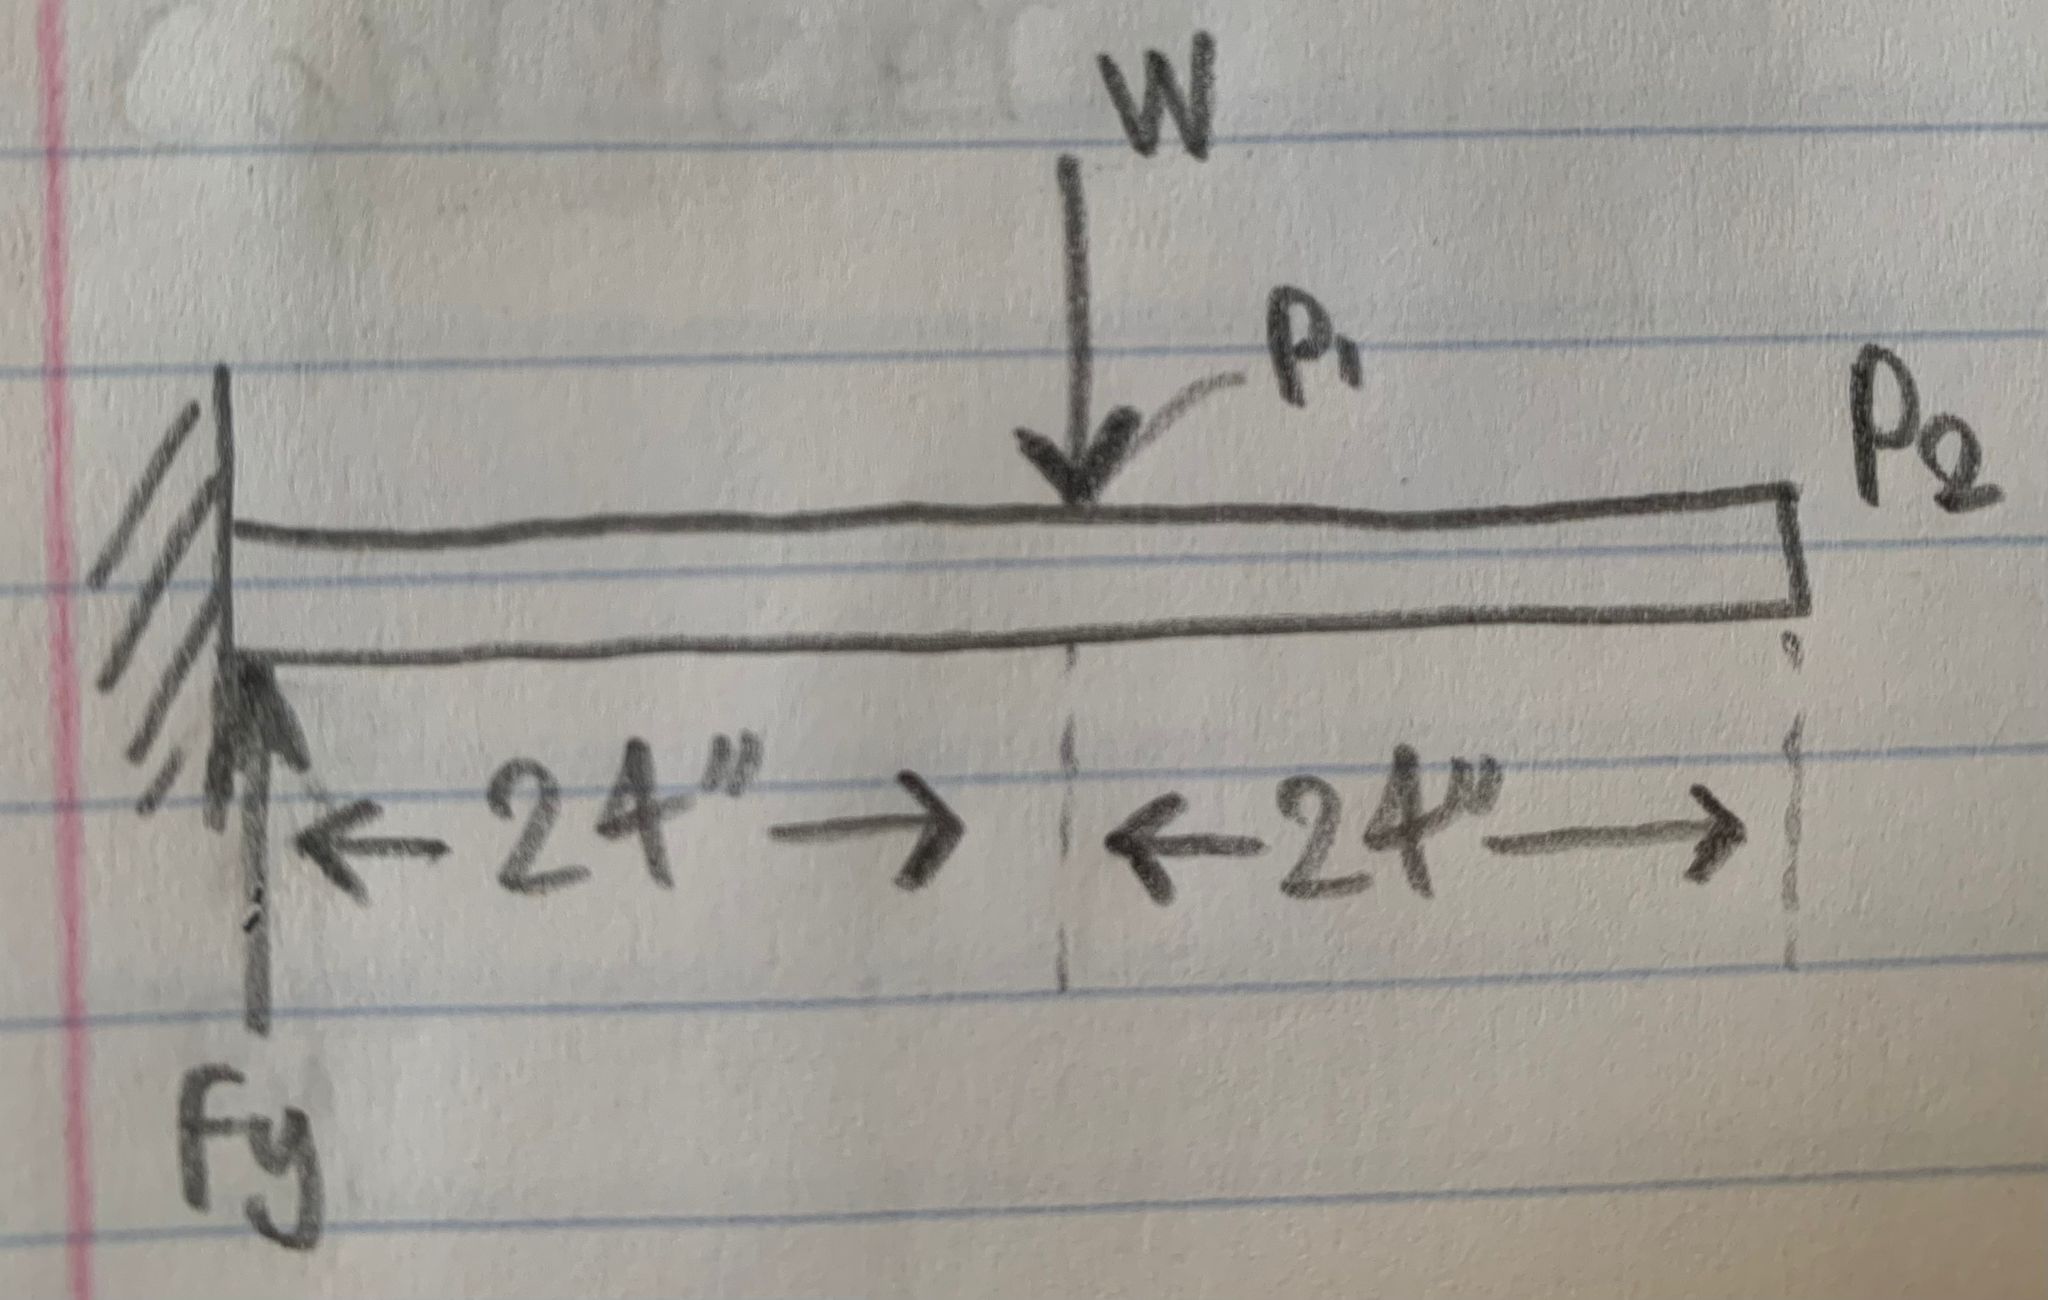 W
P₁
P₂
24" 24"
Fy